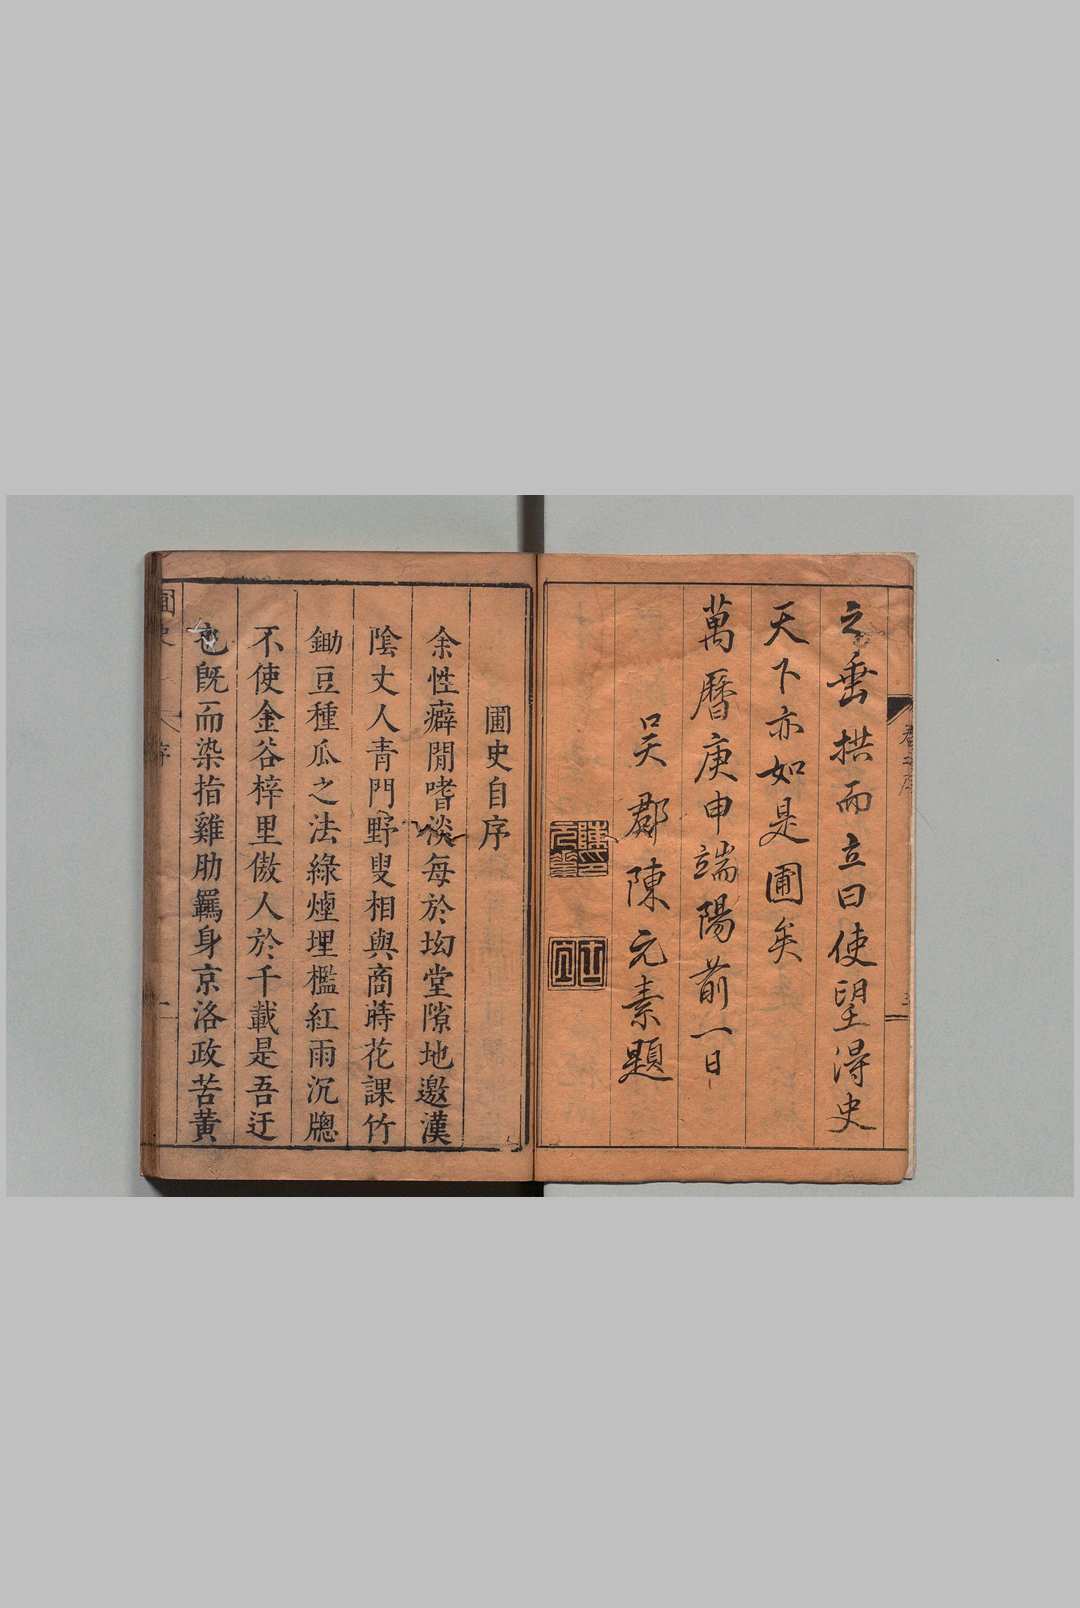 之垂拱而立曰使望得史
天下亦如是圃矣
萬曆庚申端陽前一日
吳郡陳元素題
圃史自序
余性癖閒嗜淡每於坳堂隙地邀漢
陰丈人青門野叟相與商蒔花課竹
鋤豆種瓜之法綠煙埋檻紅雨沉牕
不使金谷梓里傲人於千載是吾迂
也旣而染指雞肋羈身京洛政苦黃